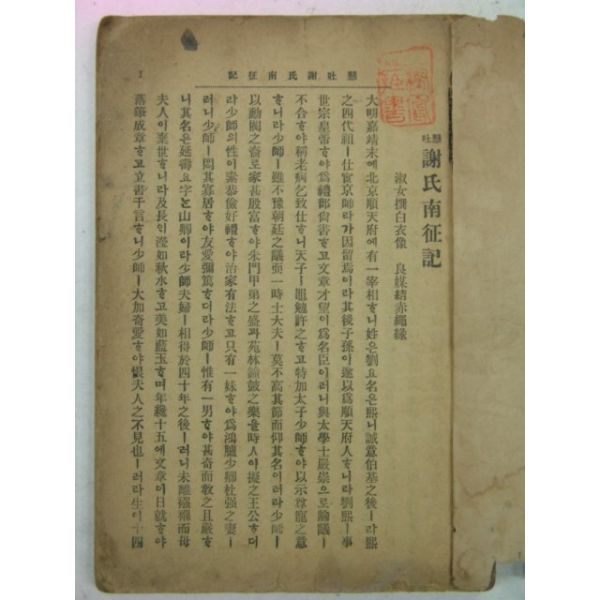 懸吐謝氏南征記
懸吐 謝氏南征記
淑女撰白衣像 良媒結赤繩緣
大明嘉靖末에北京順天府에有一宰相ᄒᆞ니姓은劉요名은熙니誠意伯基之後ㅣ라熙
之四代祖ㅣ仕實京師라가因留焉이라其後子孫이遂以爲順天府人ᄒᆞ니라劉熙ㅣ事
世宗皇帝ᄒᆞ야爲禮部尙書ᄒᆞ고文章才望이爲名臣이러니與太學士嚴崇으로論議ㅣ
不合ᄒᆞ야稱老病乞致仕ᄒᆞ니天子ㅣ黽勉許之ᄒᆞ고特加太子少師ᄒᆞ야以示尊寵之意
ᄒᆞ니라少師ㅣ雖不豫朝廷之議而一時士大夫ㅣ莫不高其節而仰其名이러라少師ㅣ
以勳閥之裔로家甚殷富ᄒᆞ야朱門甲第之盛과苑林鐘皷之樂을時人이擬之王公ᄒᆞ더
라少師의性이素恭儉好禮ᄒᆞ야治家有法ᄒᆞ고只有一妹ᄒᆞ야爲鴻臚少卿杜强之妻ㅣ
러니少師ㅣ悶其寡居ᄒᆞ야友愛彌篤ᄒᆞ더라少師ㅣ惟有一男ᄒᆞ야甚奇而敎之且嚴ᄒᆞ
니其名은延壽요字는山卿이라少師夫婦ㅣ相得於四十年之後ㅣ러니未離襁褓而母
夫人이棄世ᄒᆞ니라及長이瀅如秋水ᄒᆞ고美如藍玉ᄒᆞ며年纔十五에文章이日就ᄒᆞ야
落筆成章ᄒᆞ고立書千言ᄒᆞ니少師ㅣ大加奇愛ᄒᆞ야恨夫人之不見也ㅣ러라生이十四
1